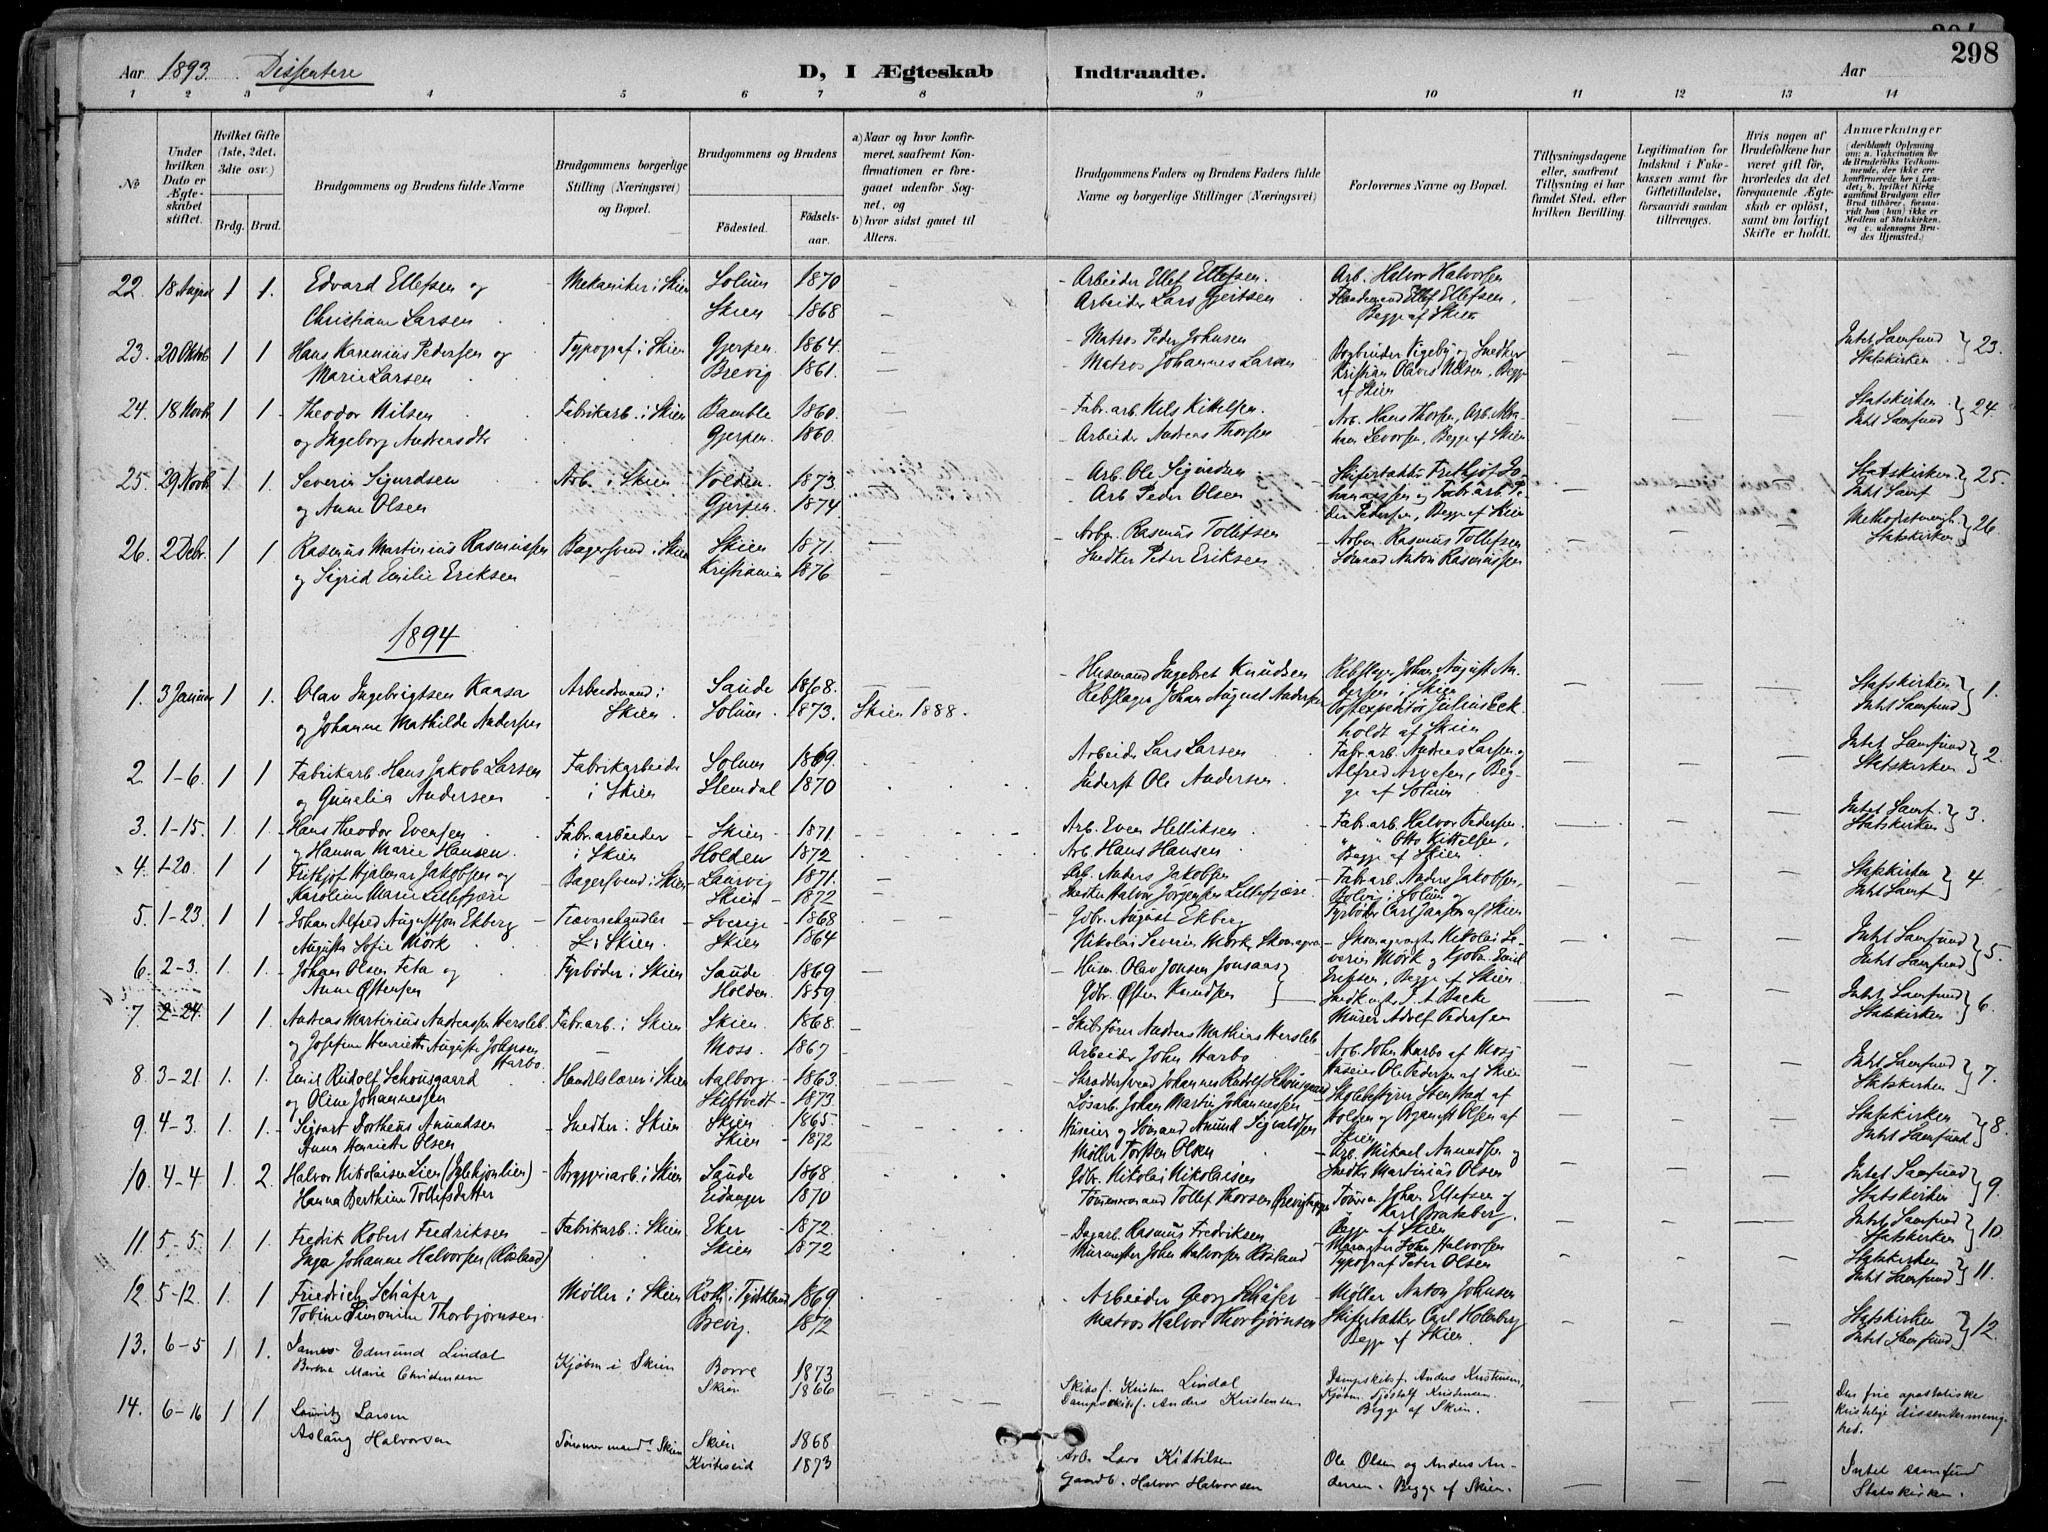 298
Aar 1893. Dissentere D, I Ægteskab Indtraadte. Aar
1 2 3 4 5 6 7 8 9 10 11 12 13 14
No
Under hvilken Dato er Ægteskabet stiftet.
Hvilket Gifte (1ste, 2det, 3die osv.)
Brdg. Brud.
Brudgommens og Brudens fulde Navne
Brudgommens borgerlige Stilling (Næringsvei) og Bopæl.
Brudgommens og Brudens
Fødested. Fødselsaar.
a) Naar og hvor konfirmeret, saafremt Konfirmationen er foregaaet udenfor Sognet, og
b) hvor sidst gaaet til Alters.
Brudgommens Faders og Brudens Faders fulde Navne og borgerlige Stillinger (Næringsvei)
Forlovernes Navne og Bopæl.
Tillysningsdagene eller, saafremt Tillysning ei har fundet Sted, efter hvilken Bevilling.
Legitimation for Indskud i Enkekassen samt for Giftetilladelse, forsaavidt saadan tiltrænges.
Hvis nogen af Brudefolkene har været gift før, hvorledes da det foregaaende Ægteskab er opløst, samt om lovligt Skifte er holdt.
Anmærkninger (deriblandt Oplysning om: a. Vakcination for de Brudefolks Vedkommende, der ikke ere konfirmerede her i Landet; b. hvilket Kirkesamfund Brudgom eller Brud tilhører, forsaavidt han (hun) ikke er Medlem af Statskirken, og c. udensogns Brudes Hjemsted.)
22. 18 August 1 1. Edvard Ellefsen og Mekaniker i Skien Solum 1870 Arbeider Ellef Ellefsen. Arb. Halvor Halvorsen
Christiane Larsen Skien 1868 Arbeider Lars Gjertsen Ellef Ellefsen, Begge af Skien
23. 20 Oktob 1 1 Hans Karenius Pedersen og Typograf i Skien Gjerpen 1864. Matros Peder Johnsen Bogbinder Vigeby og Snedker Intet Samfund } 23.
Marie Larsen Brevig 1861. Matros Johannes Larsen Kristian Olaves Nilsen, Begge af Skien Statskirken
24. 18 Novb 1 1 Theodor Nilsen Fabrikarb. i Skien Bamble 1860. Fabr. arb. Nils Kittelsen. Arb. Hans Thorsen, Arb. Statskirken } 24.
og Ingeborg Andreasdtr Gjerpen. 1860. Arbeider Andreas Thorsen Levorsen, Begge af Skien Intet Samfund
25. 29 Novb. 1 1. Severin Sigurdsen Arb. i Skien Volden 1873. Arb. Ole Sigurdsen Frithjof Johannessen og Fabr. arb. Statskirken } 25.
og Anne Olsen Gjerpen. 1874. Arb Peder Olsen Peder Pedersen, Begge af Skien Intet Samf
26. 2 Debr. 1 1 Rasmus Martinius Rasmussen Bagersvend i Skien Skien 1871. Arbm. Rasmus Tollefsen Arbm. Rasmus Tollefsen Methodistmenigh. } 26.
og Sigrid Emilie Eriksen Kristiania 1876 Snedker Peter Eriksen Sømand Anton Rasmussen Statskirken
1894
1. 3 Januar 1 1. Olav Ingebrigtsen Kaasa Arbeidsmand i Saude 1868. Husmand Ingebret Knudsen Rebslager Johan August Andersen i Skien Statskirken } 1.
og Johanne Mathilde Andersen Skien. Solum 1873. Skien 1888. Rebslager Johan August Andersen Postexpeditør Julius Eckholdt af Skien Intet Samfund
2. 1-6. 1 1 Fabrikarb. Hans Jakob Larsen Fabrikarbeider Solum 1869. Arbeider Lars Larsen Fabr. arb. Andreas Larsen og Intet Samfund } 2.
og Gunelia Andersen i Skien Slemdal 1870 Inderst Ole Andersen Alfred Arvesen, Begge af Solum Statskirken
3. 1-15. 1. 1. Hans Theodor Evensen Fabr. arbeider Skien 1871 Arb. Even Helliksen Fabr. arb. Halvor Pedersen. Intet Samf. } 3.
og Hanna Marie Hansen. i Skien Holden 1872 Arb. Hans Hansen Otto Kittelsen, Begge af Skien Statskirken
4. 1-20. 1 1 Frithjof Hjalmar Jakobsen og Bagersvend i Skien Laurvig 1871. Arb. Anders Jakobsen Fabr. arb. Anders Jakobsen, Statskirken } 4.
Karoline Marie Lillefjære Skien 1872 Snedker Halvor Jørgensen Lillefjære Bolvig i Solum og Fyrbøder Carl af Skien Intet Samf
5. 1-23 1 1 Johan Alfred Augustson Ekberg Trævarehandler Sverige 1868 Gdbr. August Ekberg Skomagermester Nikolai Severin Intet Samfund } 5.
Augusta Sofie Mørk i Skien. Skien 1864 Nikolai Severin Mørk Skomager Mørk og Kjøbm. Emil Eriksen, Begge af Skien Intet Samfund
6. 2-3. 1. 1. Johan Olsen Feta og Fyrbøder i Skien Saude 1869 Husm. Olav Jonsen Jonsaas Intet Samfund } 6.
Anne Østensen Holden. 1859 Gdbr. Østen Knudsen Murer Adolf Pedersen Statskirken
7. 2-24. 1 1. Andreas Martinius Andreassen Hersleb Fabr. arb. i Skien Skien 1868. Skibsfører Andreas Mathias Hersleb Arb. John Harbo af Moss Intet Samfund } 7.
og Josefine Henriette Augusta Johnsen Harbo. Moss. 1867 Arbeider John Harbo Huseier Ole Pedersen af Skien Statskirken
8. 3-21. 1. 1. Emil Rudolf Schousgaard Handelslærer i Skien Aalborg 1863. Skræddersvend Johannes Rudolf Schousgaard Skolebestyrer Stenstad af Statskirken } 8.
og Oline Johannessen Skiptvedt 1873 Løsarb. Johan Martin Johannessen Holden og Olsen af Skien Intet Samfund
9. 4-3. 1. 1. Sigvart Dortheus Amundsen Snedker i Skien Skien 1865. Huseier og Sømand Amund Sigvaldsen Arb. Mikael Amundsen og Intet Samfund } 9.
Anna Henriette Olsen Skien 1872 Møller Torsten Olsen Snedker Martinius Olsen Statskirken
10. 4-4 1. 2. Halvor Nikolaisen Lien (Iglekjønlien) Bryggeriarb. i Skien Saude 1868. Gdbr. Nikolai Nikolaisen Johan Ellefsen og Intet Samfund } 10
Hanna Berthine Tollefsdatter Eidanger 1870 Tømmermand Tollef Thorsen Karl Bratsberg. Begge af Skien Statskirken
11. 5-5. 1. 1. Fredrik Robert Fredriksen Fabrikarb. i Skien Eker 1872. Dagarb. Rasmus Fredriksen Murmester John Halvorsen Statskirken } 11.
Inga Johanne Halvorsen (Røsland) Skien 1872 Murmester John Halvorsen Røsland Typograf Peter Olsen Intet Samfund
12. 5-12. 1. 1 Friedrich Schäfer Møller i Skien Roth i Tyskland 1869. Arbeider Georg Schäfer Møller Anton Johnsen Statskirken } 12.
Tobine Simonine Thorbjørnsen. Brevig. 1872 Matros Halvor Thorbjørnsen Skifertækker Carl Holmberg Begge af Skien. Intet Samfund
13. 6-5 1 1. James Edmund Lindal Kjøbm i Skien Borre 1873 Skibsf. Kristen Lindal Dampskibsf. Anders Kristensen, Den frie apostoliske
Berthe Marie Christensen Skien 1866 Dampskibsf. Anders Kristensen Kjøbm. Kristensen. Begge af Skien. kristelige dissentermenighed.
14. 6-16 1 1 Lauritz Larsen Tømmermand Skien Skien 1868 Arb. Lars Kittilsen Ole Olsen og Anders Andersen. Begge af Skien. Intet samfund
Aslaug Halvorsen Kviteseid 1873 Gaardb. Halvor Halvorsen Statskirken.